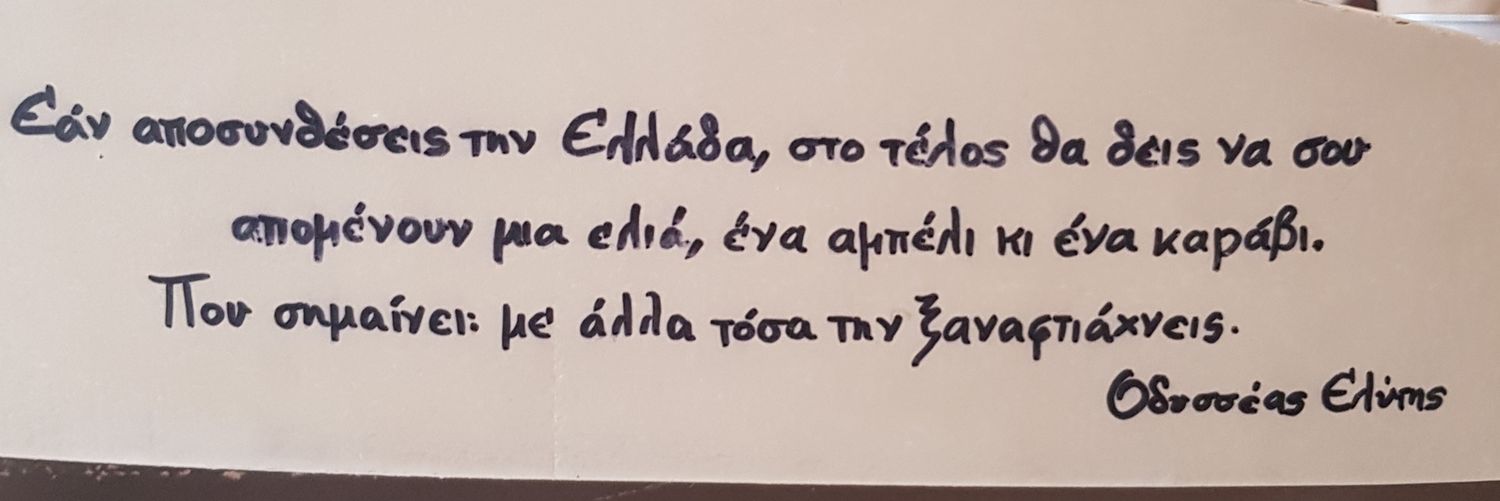 Εάν αποσυνθέσεις την Ελλάδα, στο τέλος θα δεις να σου
απομένουν μια ελιά, ένα αμπέλι κι ένα καράβι.
Που σημαίνει: με άλλα τόσα την ξαναφτιάχνεις.
Οδυσσέας Ελύτης